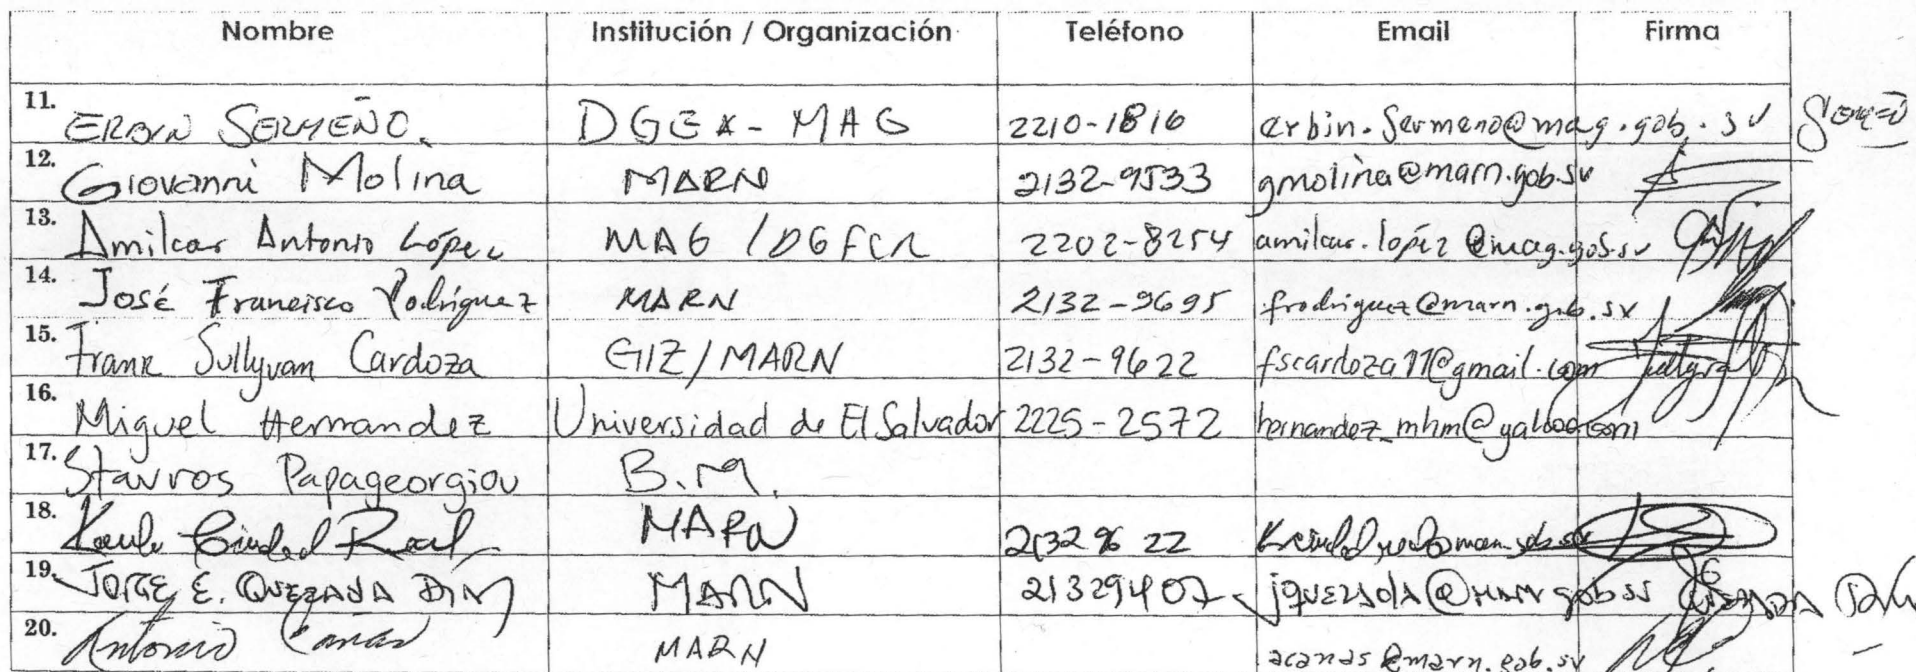 Nombre Institución / Organización Teléfono Email Firma
11. ERBIN SERMEÑO. DGEA - MAG 2210-1816 erbin.sermeno@mag.gob.sv
12. Giovanni Molina MARN 2132-9533 gmolina@marn.gob.sv
13. Amilcar Antonio López MAG / DGFCR 2202-8254 amilcar.lopez@mag.gob.sv
14. José Francisco Rodríguez MARN 2132-9695 frodriguez@marn.gob.sv
15. Frank Sullyvan Cardoza GIZ/MARN 2132-9622 fscardoza11@gmail.com
16. Miguel Hernandez Universidad de El Salvador 2225-2572 hernandez_mhm@yahoo.com
17. Stavros Papageorgiou B.M.
18. Ciudad Real MARN 21329622
19. JORGE E. QUEZADA DIAZ MARN 21329407 jquezada@marn.gob.sv
20. Antonio Cañas MARN acanas@marn.gob.sv